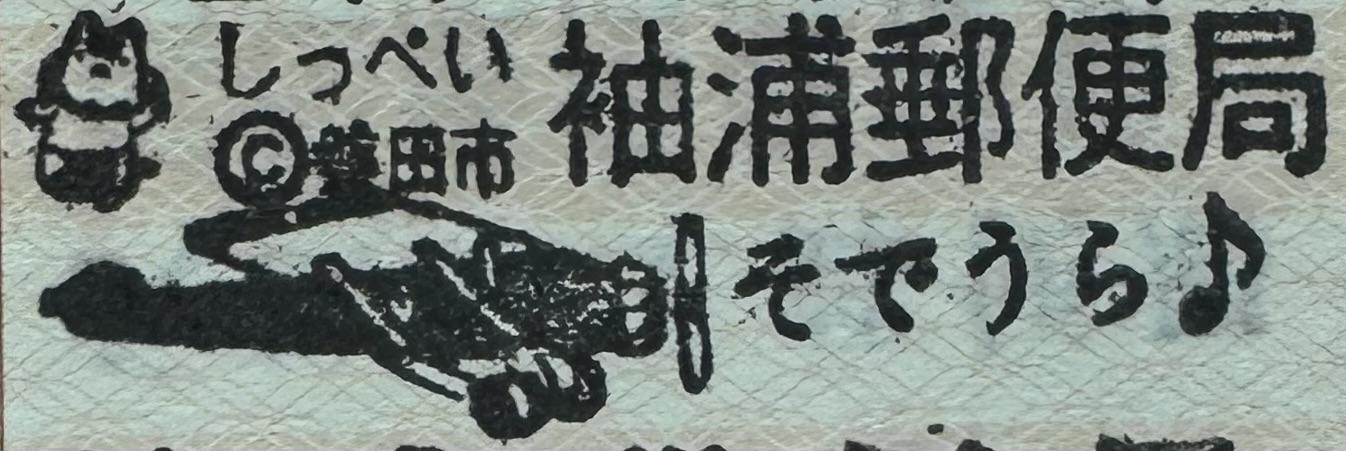 しっぺい
©磐田市
袖浦郵便局
そでうら♪